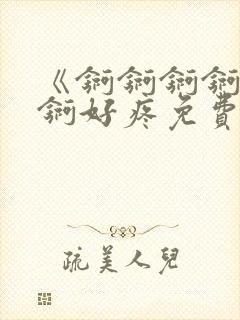 《锕锕锕锕
锕好疼免費
疏美人兒